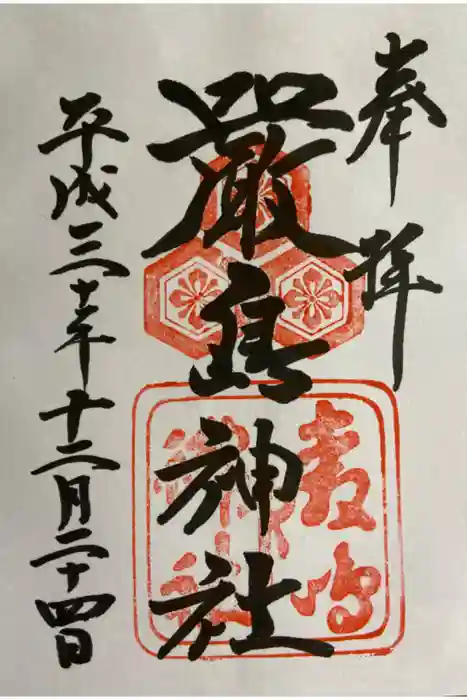 奉拝
嚴島神社
平成三十年十二月二十四日